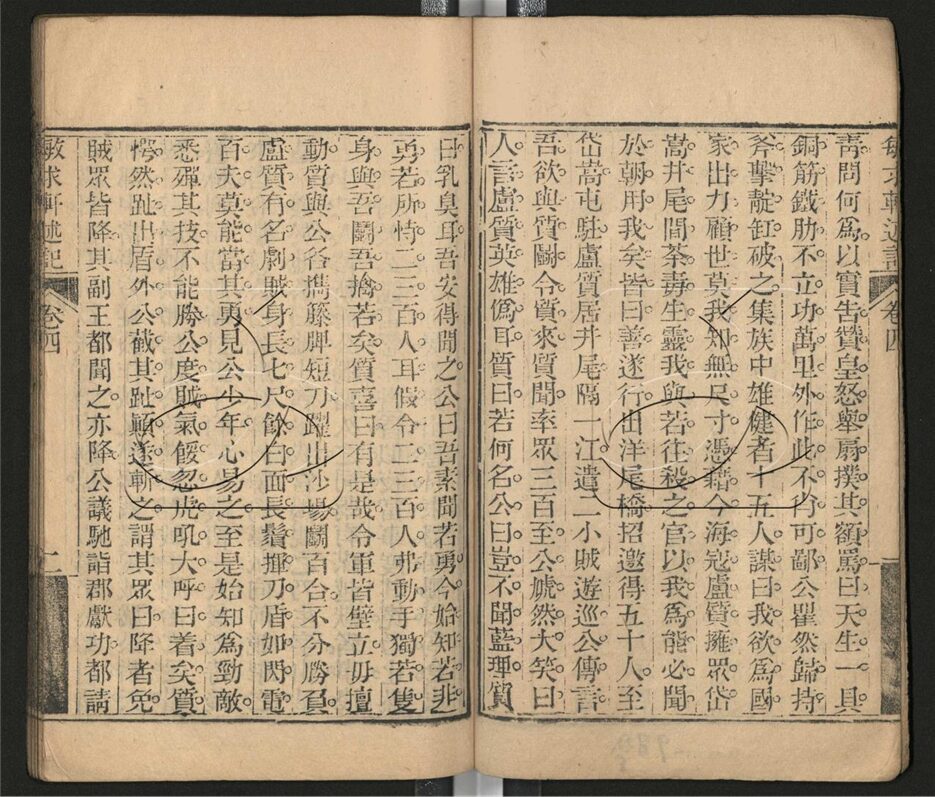 靑問何爲以實吿贊皇怒舉扇撲其額罵曰天生一具
銅筋鐵肋不立功萬里外作此不肖可鄙公瞿然歸持
斧擊靛缸破之集族中雄健者十五人謀曰我欲爲國
家出力顧世莫我知無尺寸憑藉今海寇盧質擁眾岱
嵩井尾間荼毒生靈我與若往殺之官以我爲能必聞
於朝用我矣皆曰善遂行出洋尾橋招邀得五十人至
岱嵩屯駐盧質居井尾隔一江遣二小賊遊巡公傳言
吾欲與質鬬令質來質聞率眾三百至公虓然大笑曰
人言盧質英雄僞耳質曰若何名公曰豈不聞藍理質
曰乳臭耳吾安得聞之公曰吾素聞若勇今始知若非
勇若所恃二三百人耳假令二三百人弗動手獨若隻
身與吾鬬吾擒若矣質喜曰有是哉令軍皆壁立毋擅
動質與公各攜籐牌短刀躍出沙場鬬百合不分勝負
盧質有名劇賊身長七尺餘白面長鬚揮刀盾如閃電
百夫莫能當其勇見公少年心易之至是始知爲勁敵
悉殫其技不能勝公度賊氣餒忽虎吼大呼曰着矣質
愕然趾出盾外公截其趾顚遂斬之謂其眾曰降者免
賊眾皆降其副王都聞之亦降公議馳詣郡獻功都請
敏求軒述記
卷四